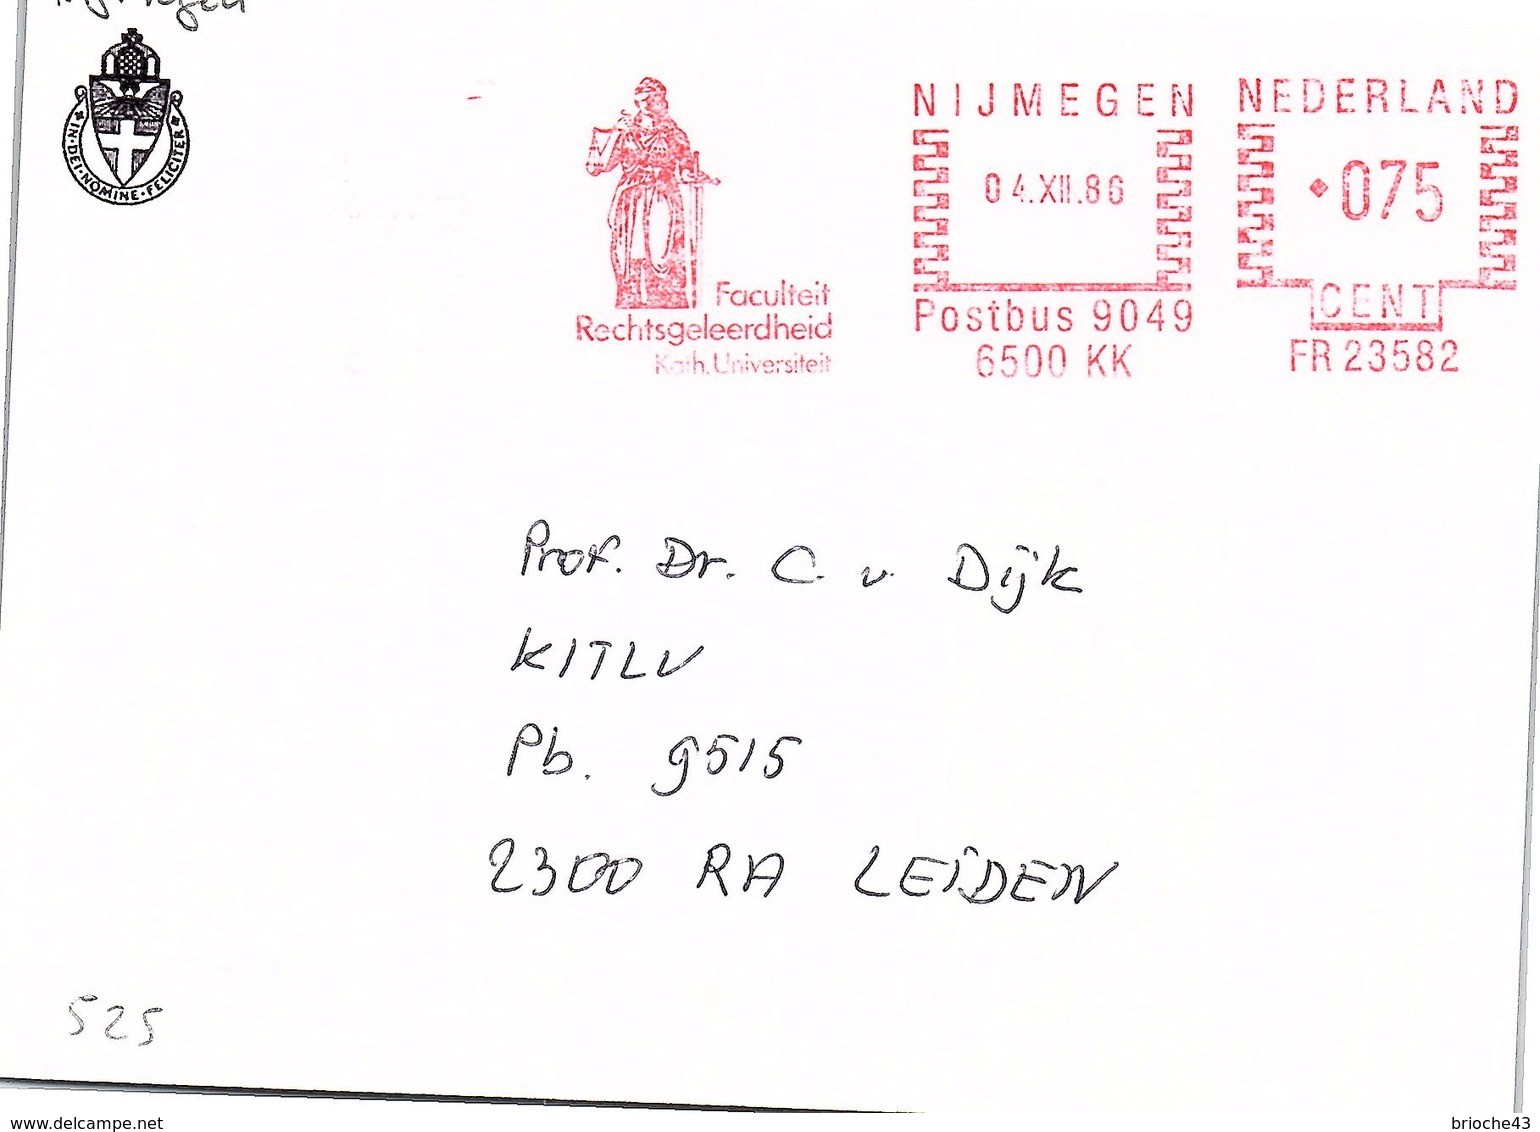 IN·DEI·NOMINE·FELICITER
Faculteit
Rechtsgeleerdheid
Kath. Universiteit
NIJMEGEN
04.XII.86
Postbus 9049
6500 KK
NEDERLAND
075
CENT
FR 23582
Prof. Dr. C. v. Dijk
KITLV
Pb. 9515
2300 RA LEIDEN
525
www.delcampe.net
brioche43